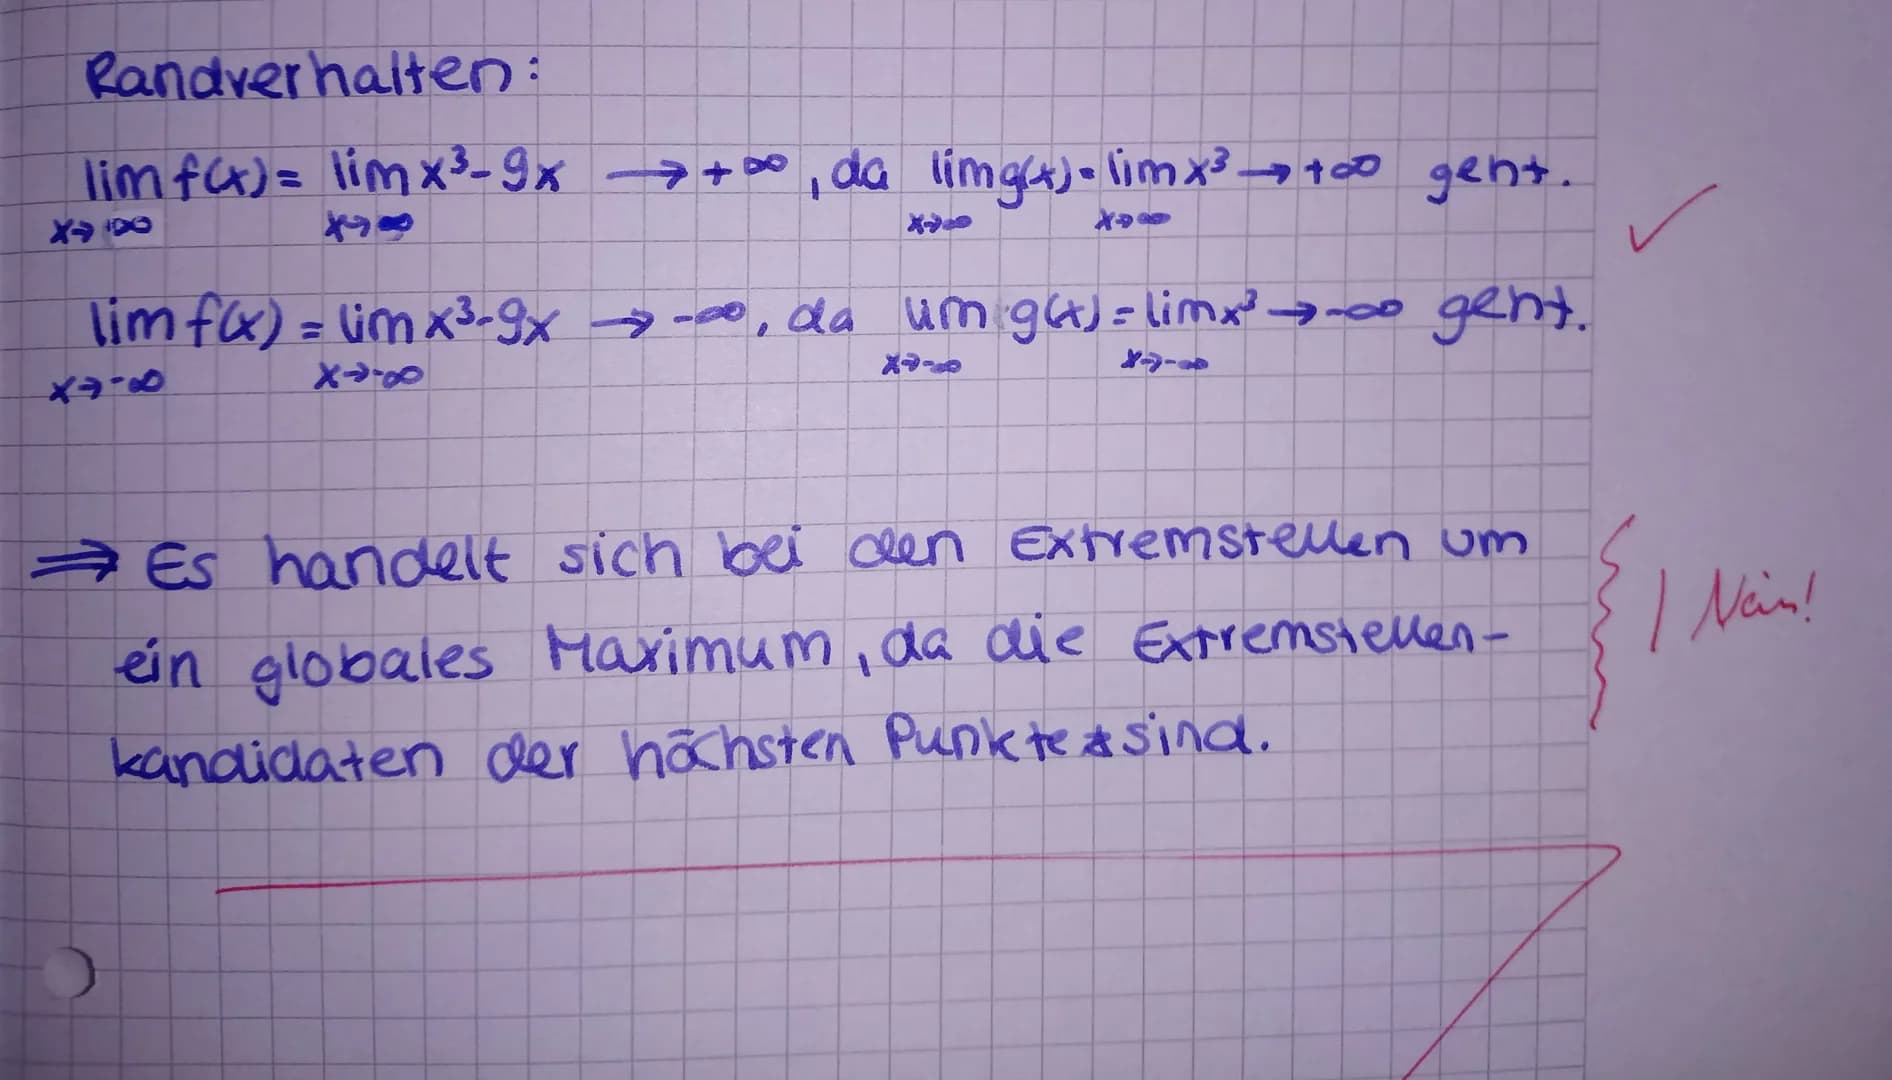 Randverhalten:
lim f(x) = lim x³-9x → +∞, da lim g(x) = lim x³ → +∞ geht.
x→∞ x→∞ x→∞ x→∞
lim f(x) = lim x³-9x → -∞, da lim g(x) = lim x³ → -∞ geht.
x→-∞ x→-∞ x→-∞ x→-∞
⇒ Es handelt sich bei den Extremstellen um
ein globales Maximum, da die Extremstellen-
kandidaten der höchsten Punkte sind.
Nein!